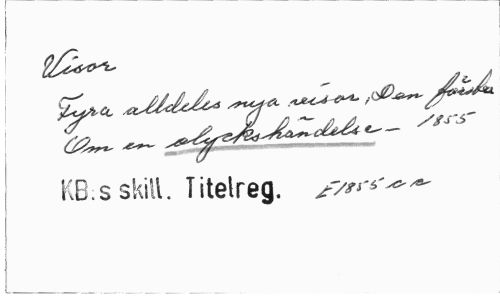 Visor
Fyra alldeles nya visor, Den första
Om en olyckshändelse - 1855
KB:s skill. Titelreg. E1855 c c